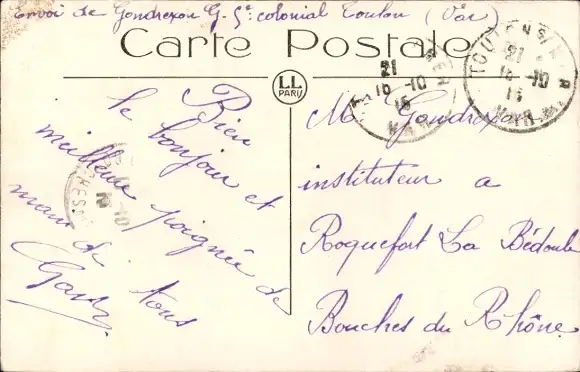 Envoi de Gondrexon G. 5e colonial Toulon (Var)
Carte Postale
LL
PARIS
Bien
le bonjour et
meilleure poignée de
main de tous
TOULON S MER
21
16-10
15
VAR
21
16-10
15
Mr Gondrexon
instituteur a
Roquefort La Bédoule
Bouches du Rhône